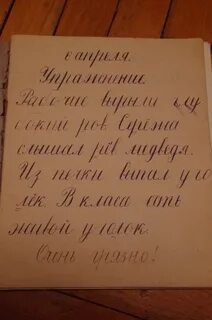 6 апреля.
Упражнение.
Рабочие вырыли глу
бокий ров. Серёжа
слышал рёв медведя.
Из печки выпал уго
лёк. В классе есть
живой уголок.
Очень грязно!